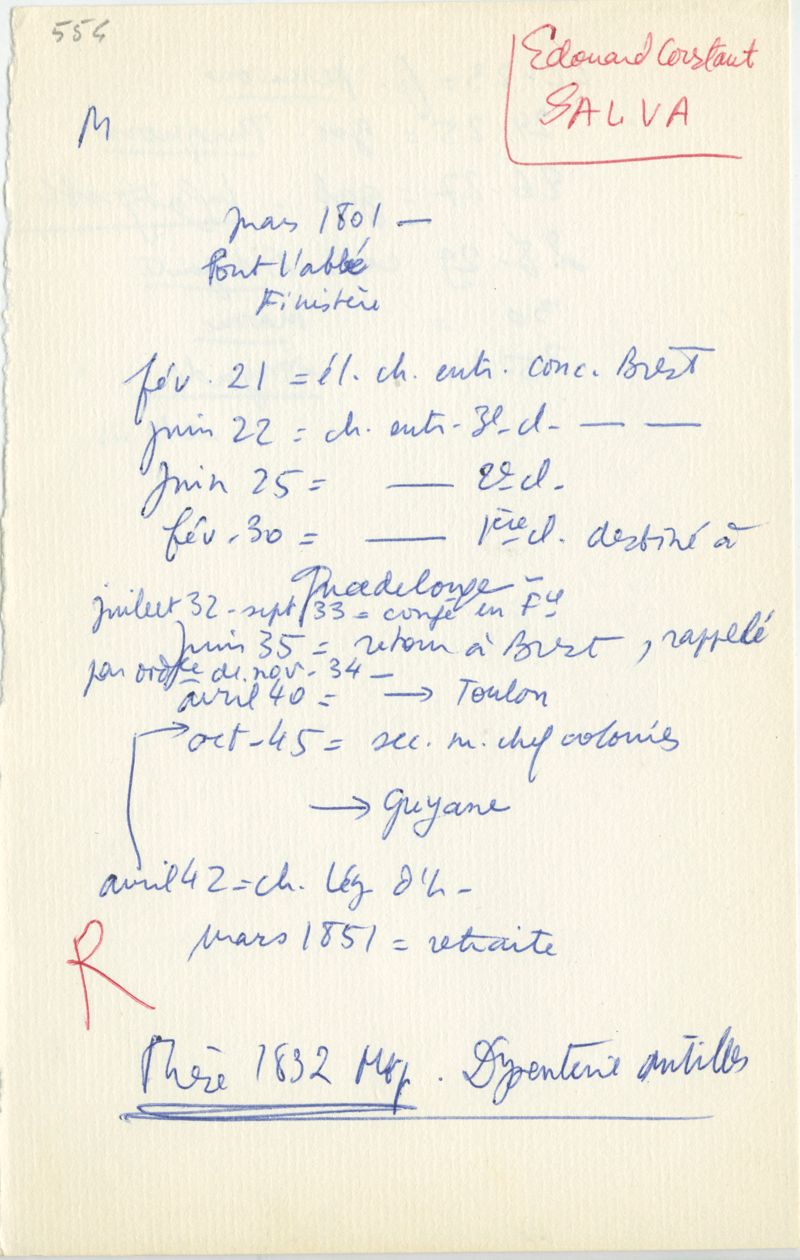 554
Edouard Constant
SALVA
M
mars 1801 —
Pont l'abbé
Finistère
fév. 21 = él. ch. entr. conc. Brest
juin 22 = ch. entr. 3e cl. — —
Juin 25 = — 2e cl.
fév. 30 = — 1ère cl. destiné à
Guadeloupe —
juillet 32 - sept 33 = congé en Fce
Juin 35 = retour à Brest, rappelé
par ordre de nov. 34 —
avril 40 = → Toulon
oct-45 = sec. m. chef colonies
→ Guyane
avril 42 = ch. Lég. d'h.
mars 1851 = retraite
R
Thèse 1832 Mtp. Dysenterie antilles